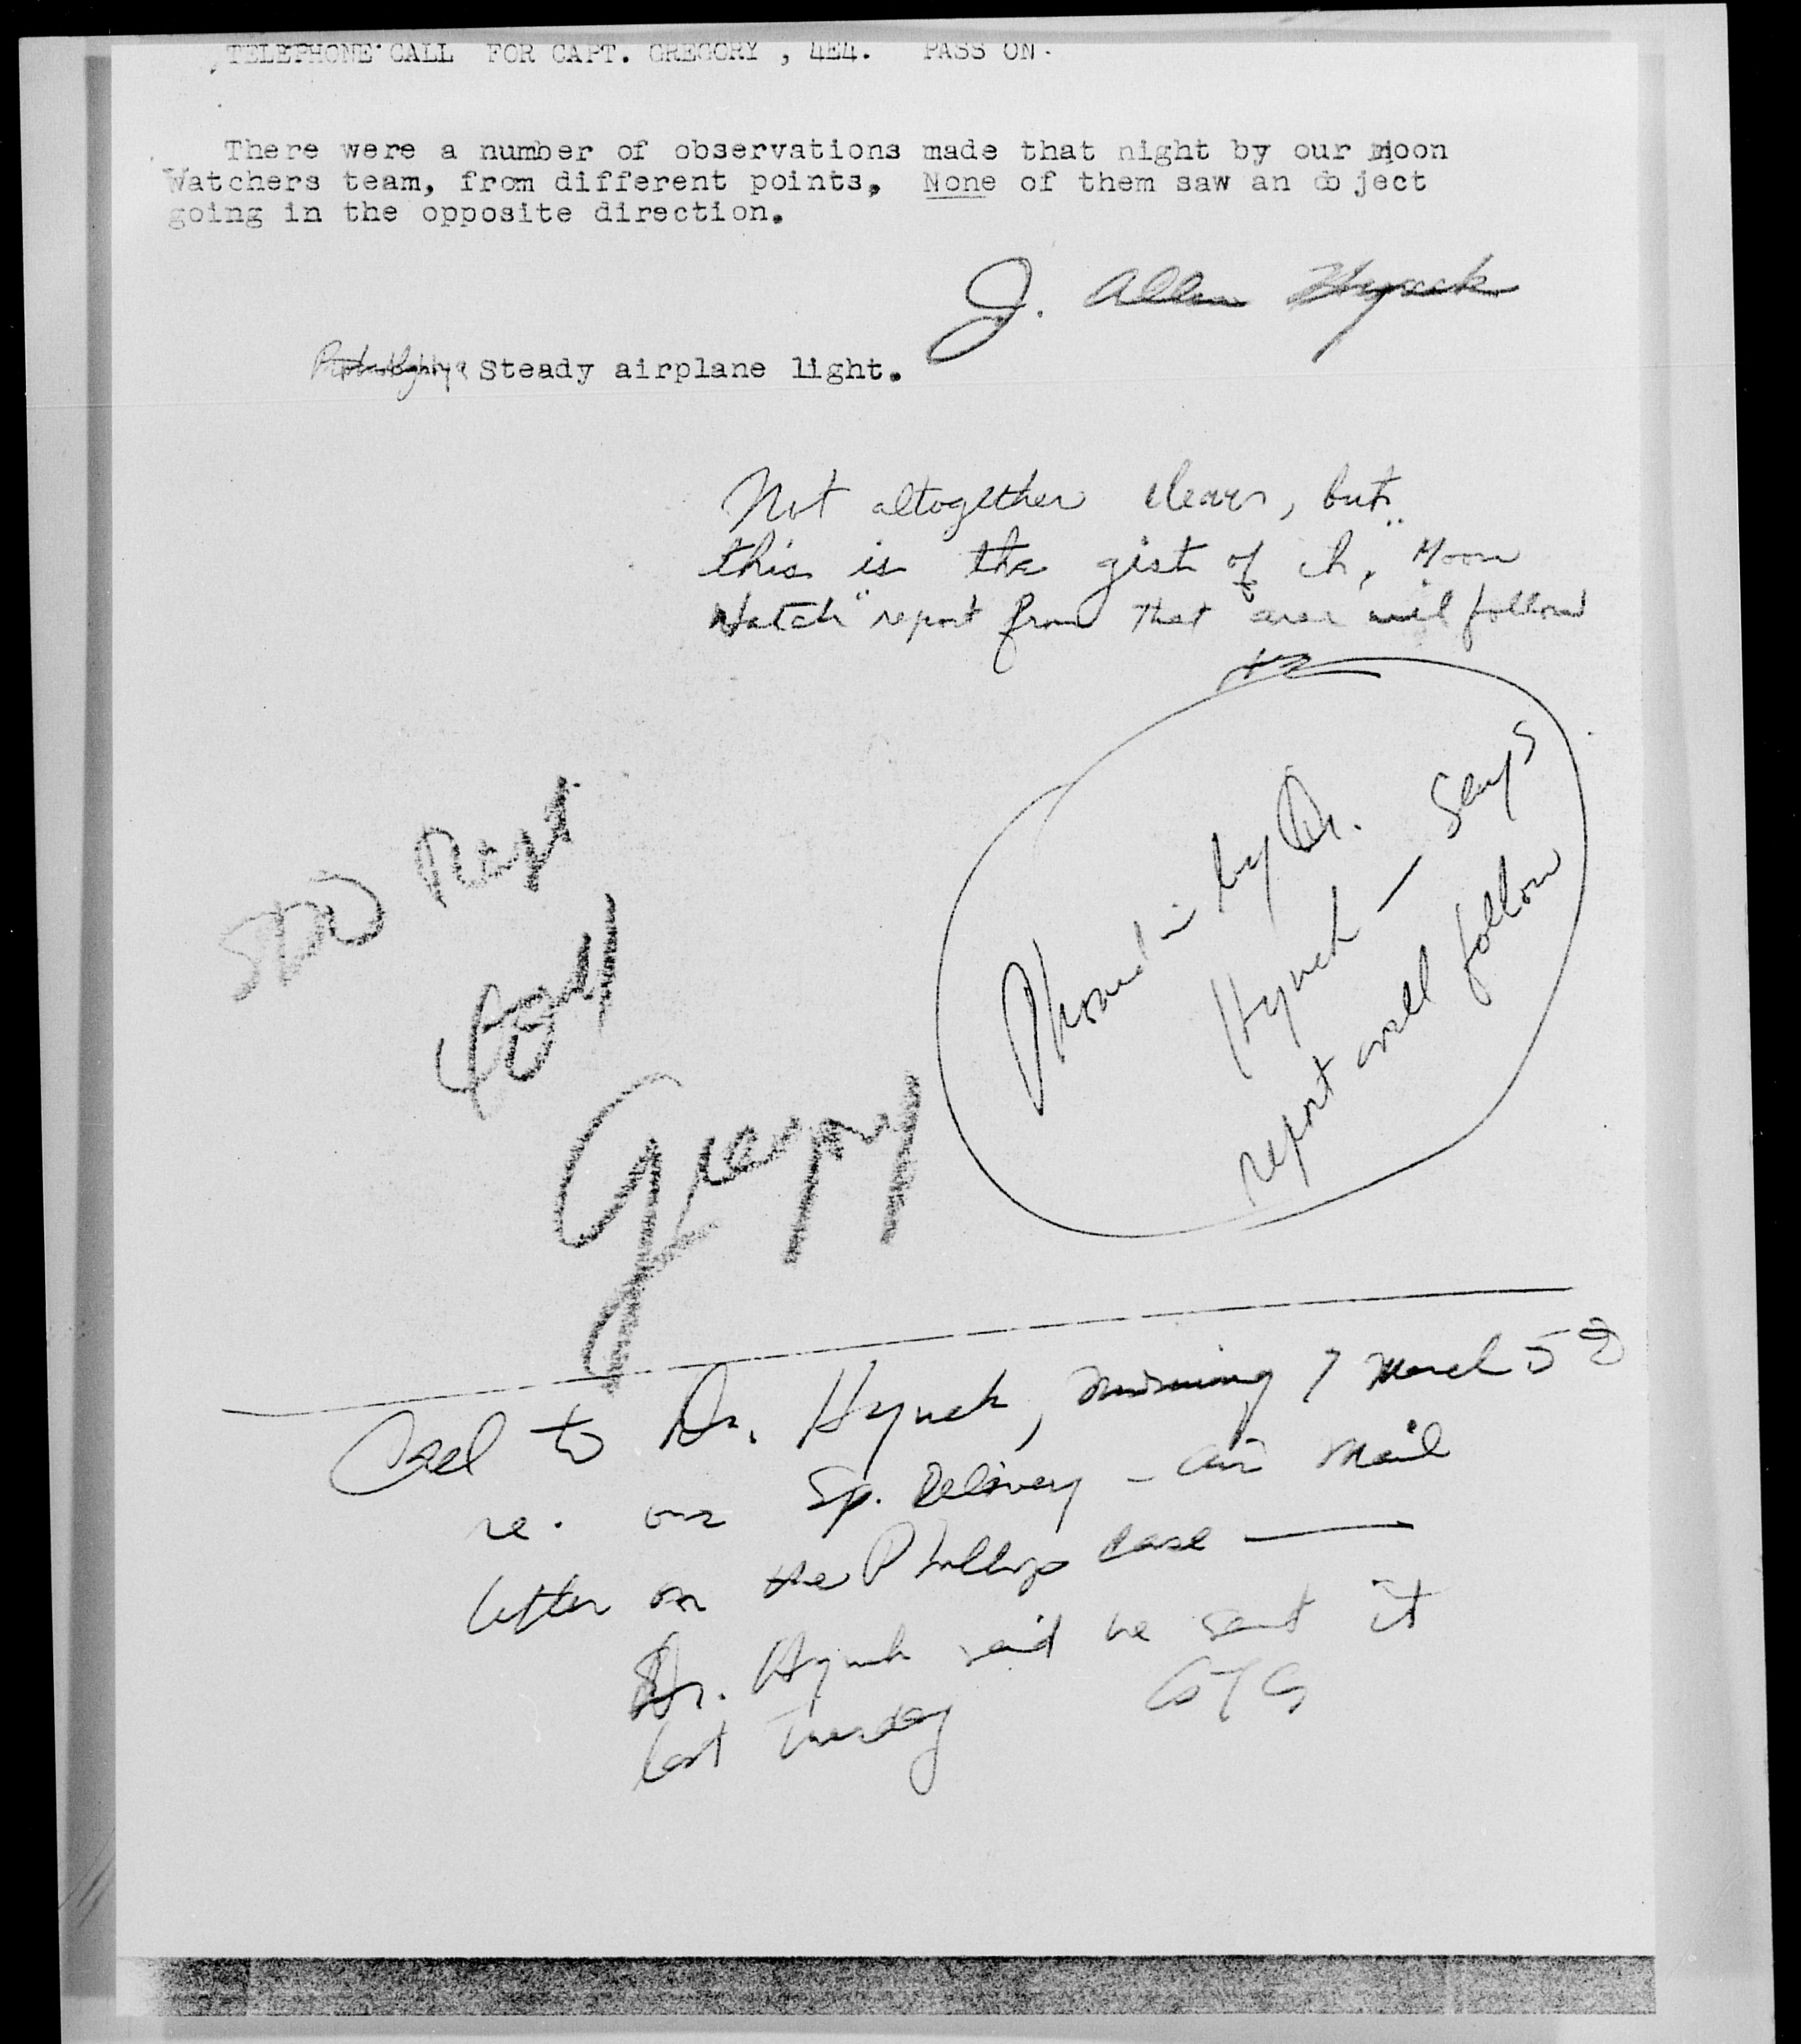 TELEPHONE CALL FOR CAPT. GREGORY , 4E4. PASS ON.
There were a number of observations made that night by our moon
Watchers team, from different points, None of them saw an object
going in the opposite direction.
J. Allen Hynek
Steady airplane light.
Not altogether clear, but
this is the gist of it. "Moon
Watch" report from that area will follow
Phoned in by Dr.
Hynek — Says
report will follow
Gregory
Call to Dr. Hynek, morning 7 March 58
re. our Sp. Delivery - air mail
letter on the Phillips case —
Dr. Hynek said he sent it
last Tuesday GTG